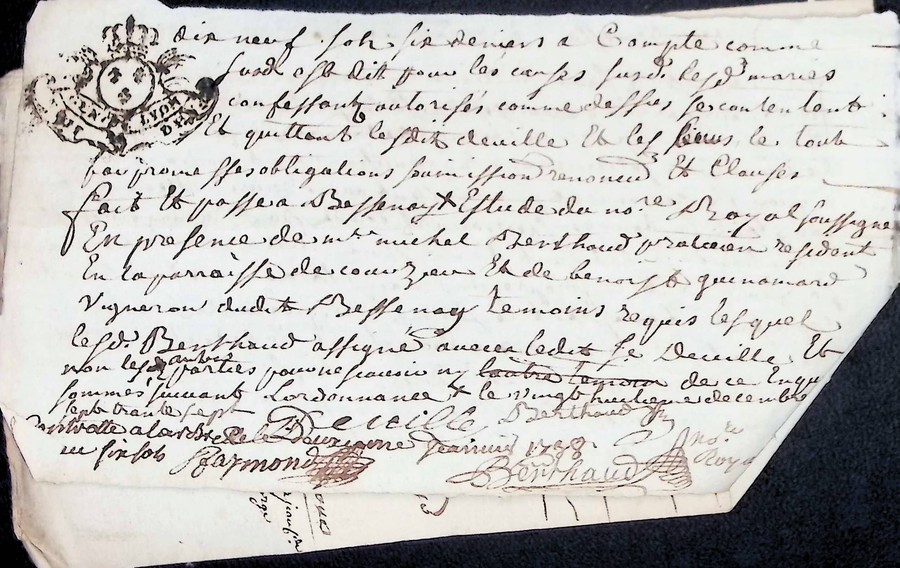 dix neuf sols six deniers a Compte comme
susd. est dit pour les causes susd. lesd. mariés
confessant autorisés comme dessus se contentent
Et quittent lesdit deville Et les siens le tout
par promesses obligations soumission renonciõ Et Clauses
fait Et passé a Bessenay Estude du no.re Royal soussigné
En presence de m.re michel Berthaud praticien residant
En la parroisse de courzieu Et de benoist guinamard
Vigneron dudit Bessenay temoins requis lesquel
lesd. Berthaud a signé avec ledit Sr Deville Et
non les autres parties pour ne scavoir ny de ce Enquis
sommés suivant Lordonnance le vingt huitieme decembre
sept trente sept Deville Berthaud
a larbresle le Deuxieme Janvier 1738
six sols Raymond Berthaud no.re Roya
LYON